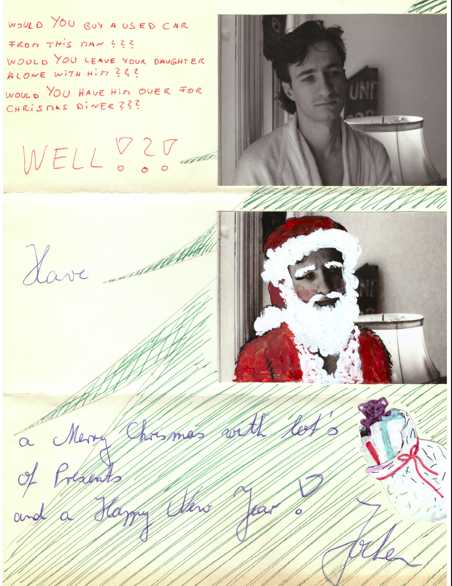 WOULD YOU BUY A USED CAR
FROM THIS MAN ???
WOULD YOU LEAVE YOUR DAUGHTER
ALONE WITH HIM ???
WOULD YOU HAVE HIM OVER FOR
CHRISMAS DINER???
WELL!?!
Have
a Merry Chrismas with lot's
of Presents
and a Happy New Year!
Jochen